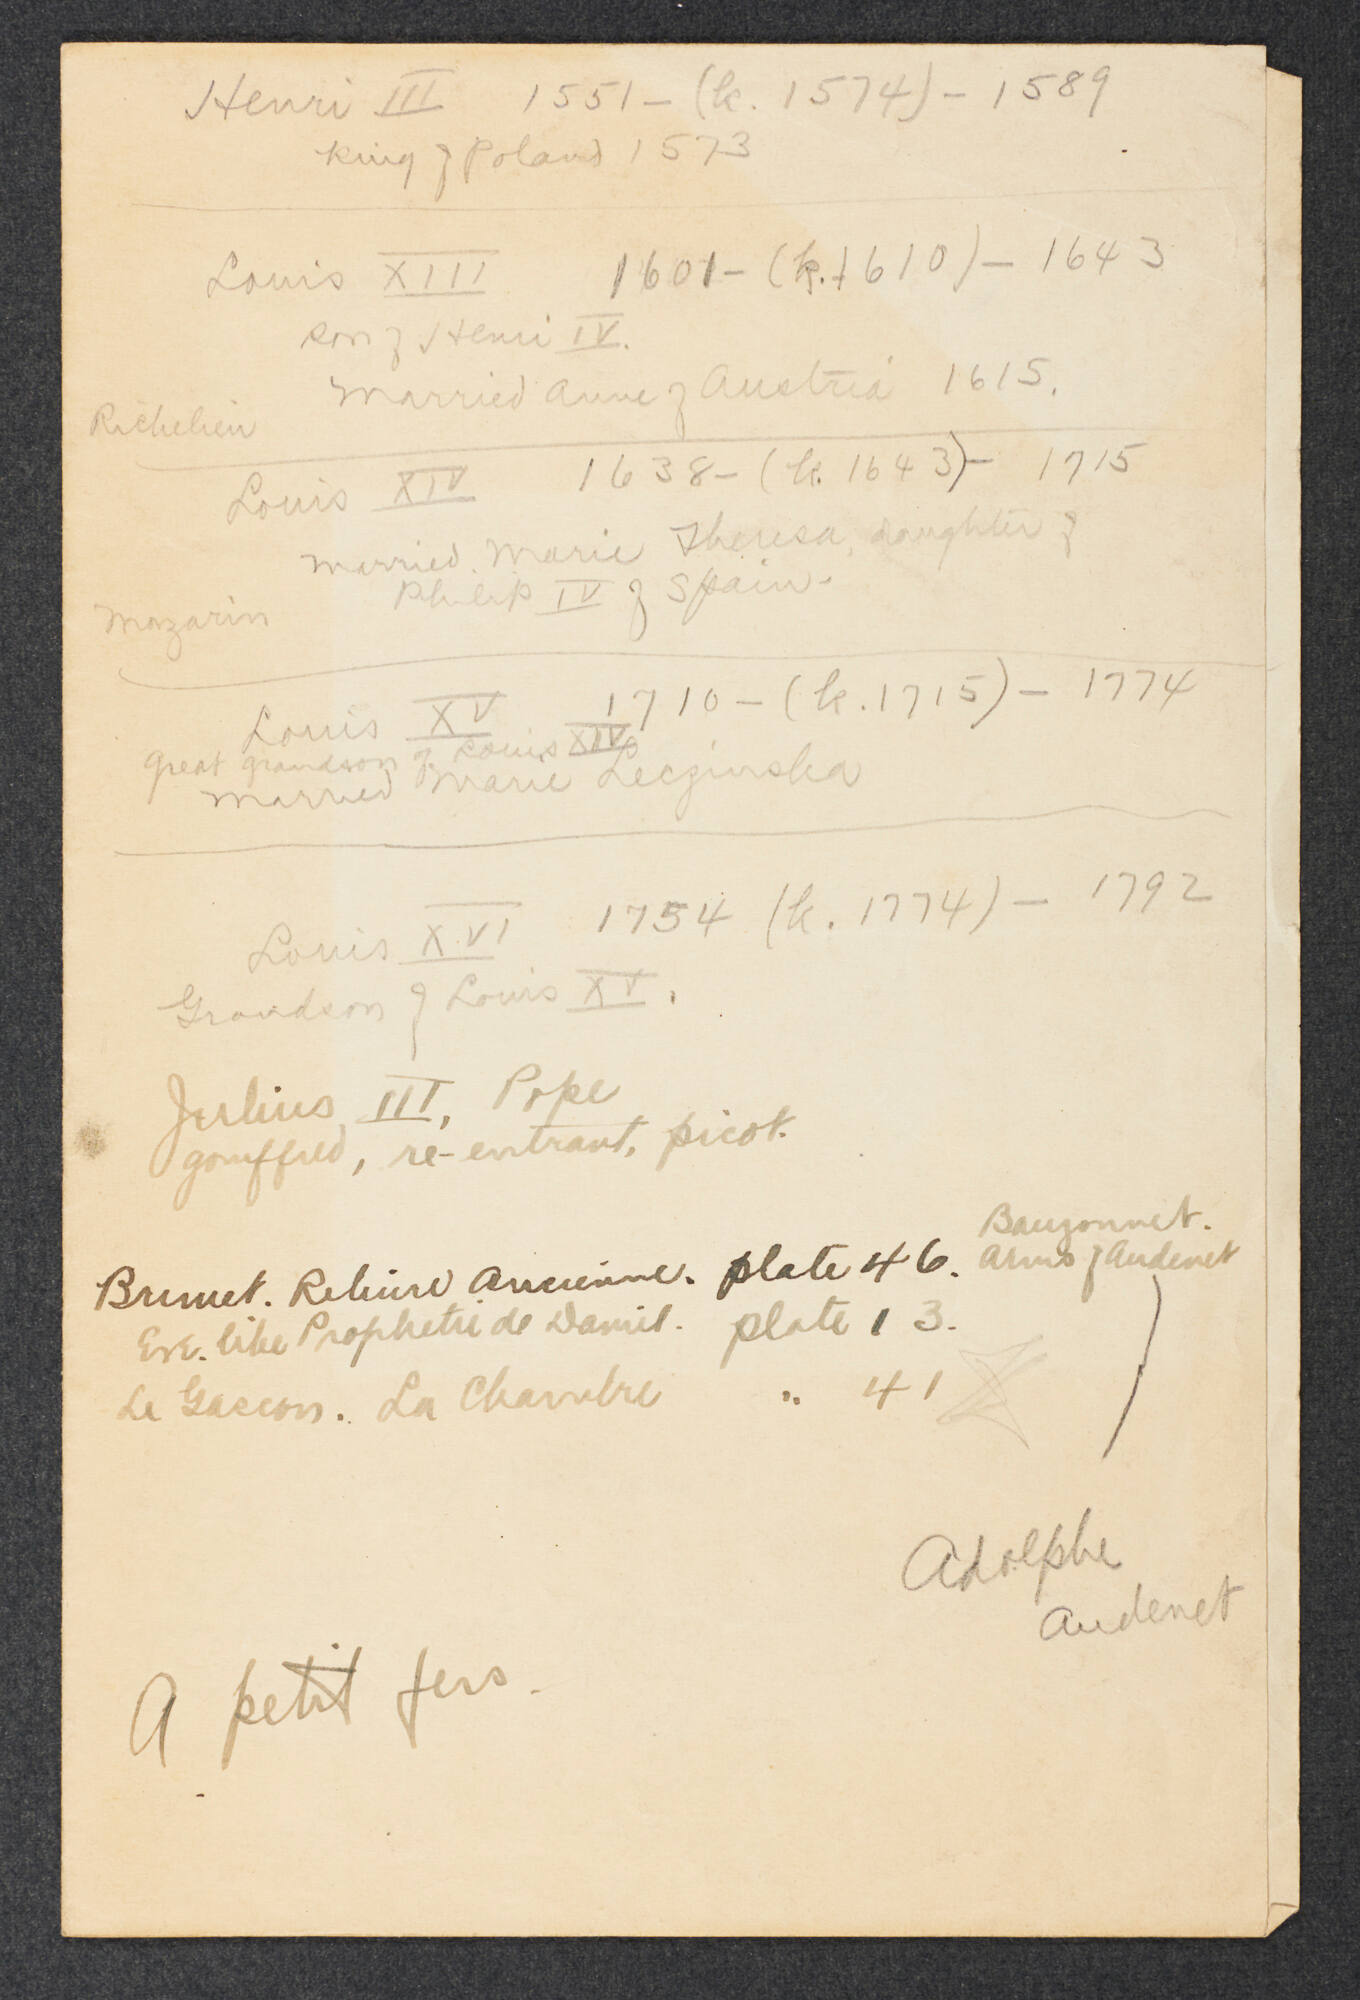 Henri III 1551 - (k. 1574) - 1589
King of Poland 1573
Louis XIII 1601 - (k. 1610) - 1643
son of Henri IV.
Married Anne of Austria 1615.
Richelieu
Louis XIV 1638 - (k. 1643) - 1715
married. Marie Theresa, daughter of
Philip IV of Spain.
Mazarin
Louis XV 1710 - (k. 1715) - 1774
Great grandson of Louis XIV
married Marie Leczinska
Louis XVI 1754 (k. 1774) - 1792
Grandson of Louis XV.
Julius III, Pope
gouffred, re-entrant, picot.
Bauzonnet.
Arms of Audenet
Brunet. Reliure Ancienne. plate 46.
Eve. like Prophetie de Daniel. plate 13.
Le Gascon. La Chambre " 41
Adolphe
Audenet
A petit fers.